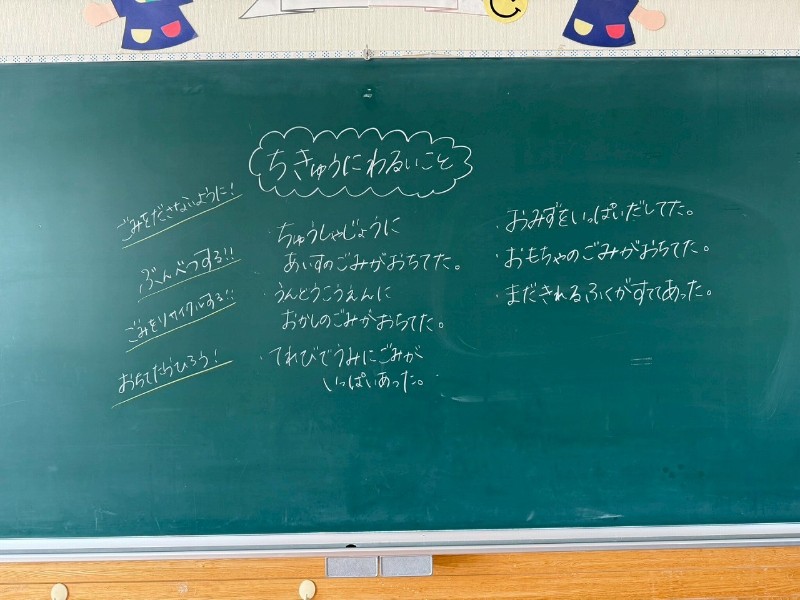 ちきゅうにわるいこと
ごみをださないように!
ぶんべつする!!
ごみをリサイクルする!!
おちてたらひろう!
・ちゅうしゃじょうに
あいすのごみがおちてた。
・うんどうこうえんに
おかしのごみがおちてた。
・てれびでうみにごみが
いっぱいあった。
・おみずをいっぱいだしてた。
・おもちゃのごみがおちてた。
・まだきれるふくがすててあった。